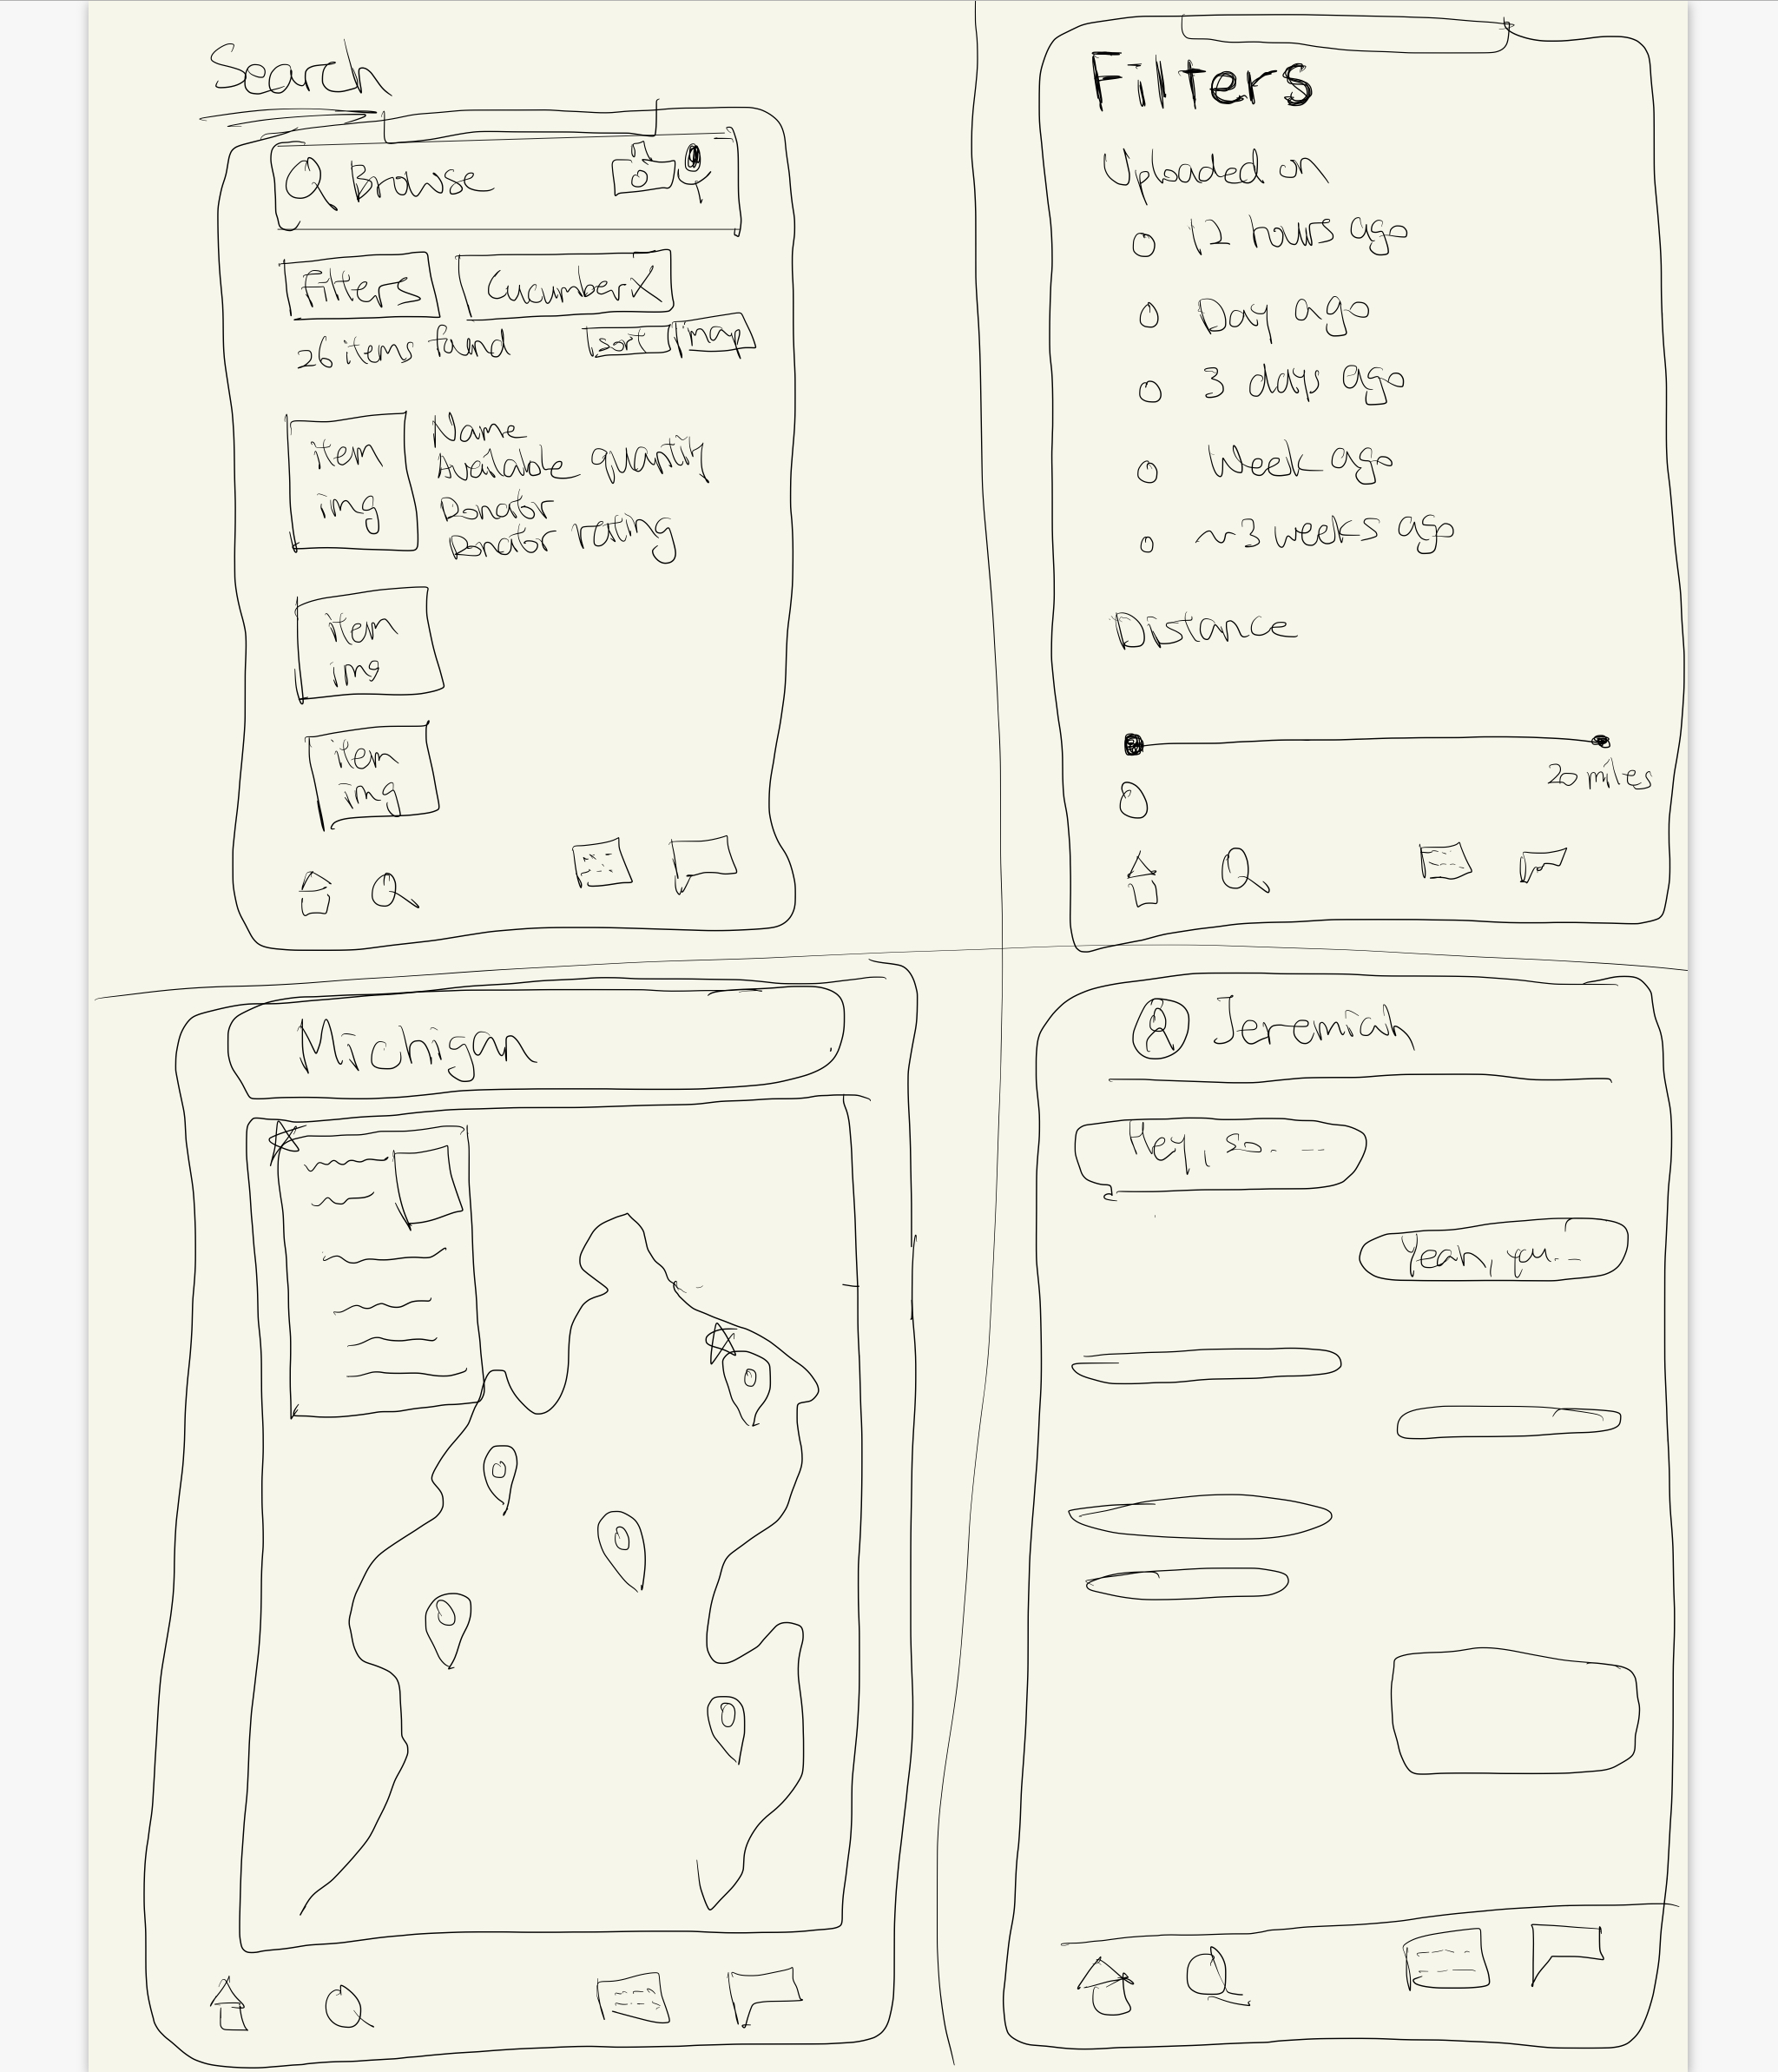 Search
Browse
Filters
Cucumber X
26 items found
sort
map
item
img
Name
Available quantity
Donator
Donator rating
item
img
item
img
Filters
Uploaded on
12 hours ago
Day ago
3 days ago
Week ago
~3 weeks ago
Distance
0
20 miles
Michigan
Jeremiah
Hey, so. --
Yeah, you.. -